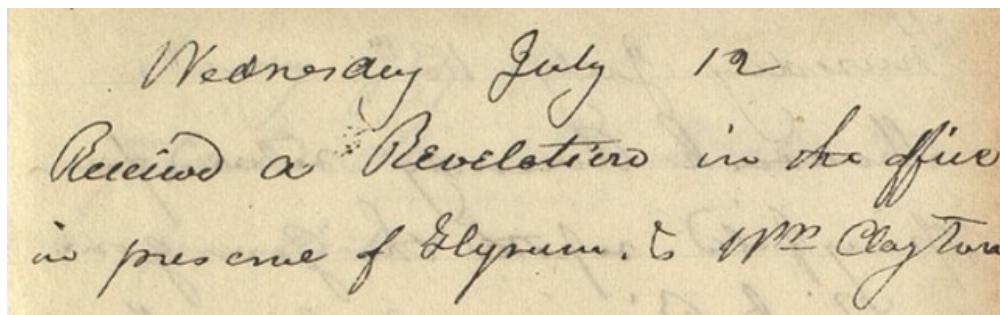 Wednesday July 12
Received a Revelation in the office
in presence of Hyrum. & Wm Clayton